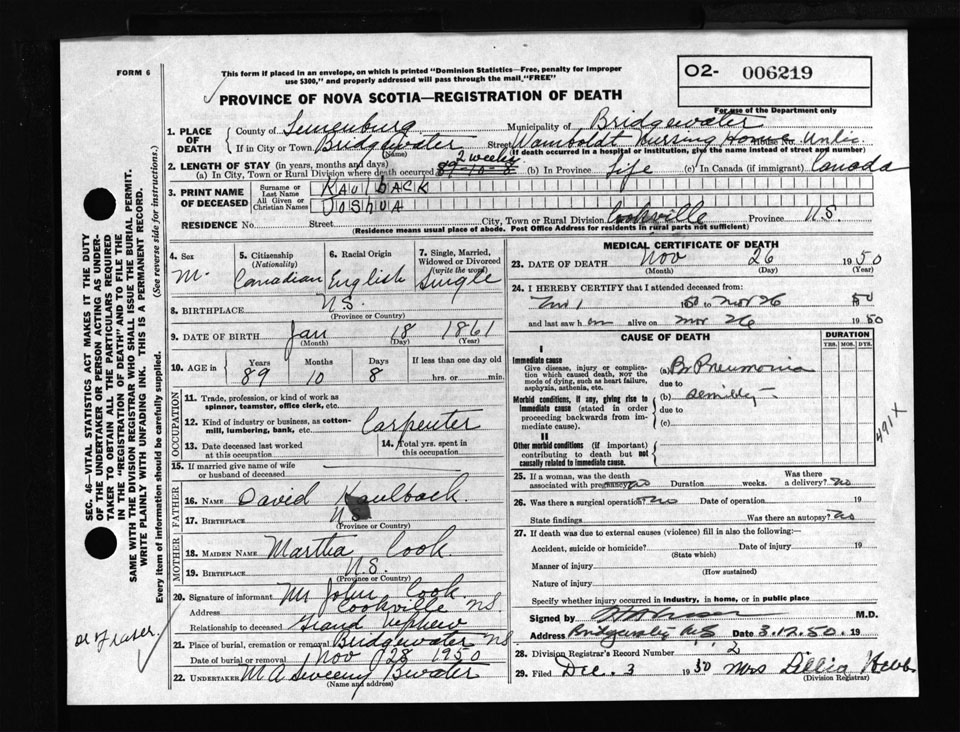 FORM 6
This form if placed in an envelope, on which is printed "Dominion Statistics—Free, penalty for improper
use $300," and properly addressed will pass through the mail "FREE"
O2- 006219
For use of the Department only
PROVINCE OF NOVA SCOTIA—REGISTRATION OF DEATH
1. PLACE OF DEATH
County of Lunenburg Municipality of Bridgewater
If in City or Town Bridgewater Street Wamboldt Nursing Home House No.
(Name) (If death occurred in a hospital or institution, give the name instead of street and number)
2. LENGTH OF STAY (in years, months and days)
(a) In City, Town or Rural Division where death occurred 2 weeks 89-10-8 (b) In Province Life (c) In Canada (if immigrant) Canada
3. PRINT NAME OF DECEASED
Surname or Last Name KAULBACK
All Given or Christian Names JOSHUA
RESIDENCE No. Street City, Town or Rural Division Cookville Province N.S.
(Residence means usual place of abode. Post Office Address for residents in rural parts not sufficient)
4. Sex M.
5. Citizenship (Nationality) Canadian
6. Racial Origin English
7. Single, Married, Widowed or Divorced (write the word) Single
8. BIRTHPLACE N.S.
(Province or Country)
9. DATE OF BIRTH Jan 18 1861
(Month) (Day) (Year)
10. AGE in Years 89 Months 10 Days 8 If less than one day old
hrs. or min.
OCCUPATION
11. Trade, profession, or kind of work as
spinner, teamster, office clerk, etc.
12. Kind of industry or business, as cotton-
mill, lumbering, bank, etc. Carpenter
13. Date deceased last worked
at this occupation
14. Total yrs. spent in
this occupation
15. If married give name of wife
or husband of deceased
FATHER
16. NAME David Kaulback.
17. BIRTHPLACE N.S.
(Province or Country)
MOTHER
18. MAIDEN NAME Martha Cook.
19. BIRTHPLACE N.S.
(Province or Country)
20. Signature of informant Mr John Cook.
Address Cookville NS
Relationship to deceased Grand Nephew
21. Place of burial, cremation or removal Bridgewater NS
Date of burial or removal Nov 28 1950
22. UNDERTAKER M A Sweeny Bwater
(Name and address)
MEDICAL CERTIFICATE OF DEATH
23. DATE OF DEATH Nov 26 1950
(Month) (Day)
24. I HEREBY CERTIFY that I attended deceased from:
to Nov 26 50
and last saw h im alive on Nov 26 1950
CAUSE OF DEATH
DURATION
YRS. MOS. DYS.
I
Immediate cause
Give disease, injury or complica-
tion which caused death, NOT the
mode of dying, such as heart failure,
asphyxia, asthenia, etc.
(a) Br Pneumonia
due to
Morbid conditions, if any, giving rise to
immediate cause (stated in order
proceeding backwards from im-
mediate cause).
(b) Senility -
due to
(c)
II
Other morbid conditions (if important)
contributing to death but not
causally related to immediate cause.
491X
25. If a woman, was the death
associated with pregnancy? no Duration weeks. Was there
a delivery? no
26. Was there a surgical operation? no Date of operation 19
State findings Was there an autopsy? no
27. If death was due to external causes (violence) fill in also the following:—
Accident, suicide or homicide? Date of injury 19
(State which)
Manner of injury
(How sustained)
Nature of injury
Specify whether injury occurred in industry, in home, or in public place
Signed by M.D.
Address Bridgewater NS Date 3.12.50. 19
28. Division Registrar's Record Number 2
29. Filed Dec. 3 1950 Mrs Lillia Hebb
(Division Registrar)
SEC. 46—VITAL STATISTICS ACT MAKES IT THE DUTY
OF THE UNDERTAKER OR PERSON ACTING AS UNDER-
TAKER TO OBTAIN ALL THE PARTICULARS REQUIRED
IN THE "REGISTRATION OF DEATH" AND TO FILE THE
SAME WITH THE DIVISION REGISTRAR WHO SHALL ISSUE THE BURIAL PERMIT.
WRITE PLAINLY WITH UNFADING INK. THIS IS A PERMANENT RECORD.
Every item of information should be carefully supplied. (See reverse side for instructions.)
Dr Fraser.